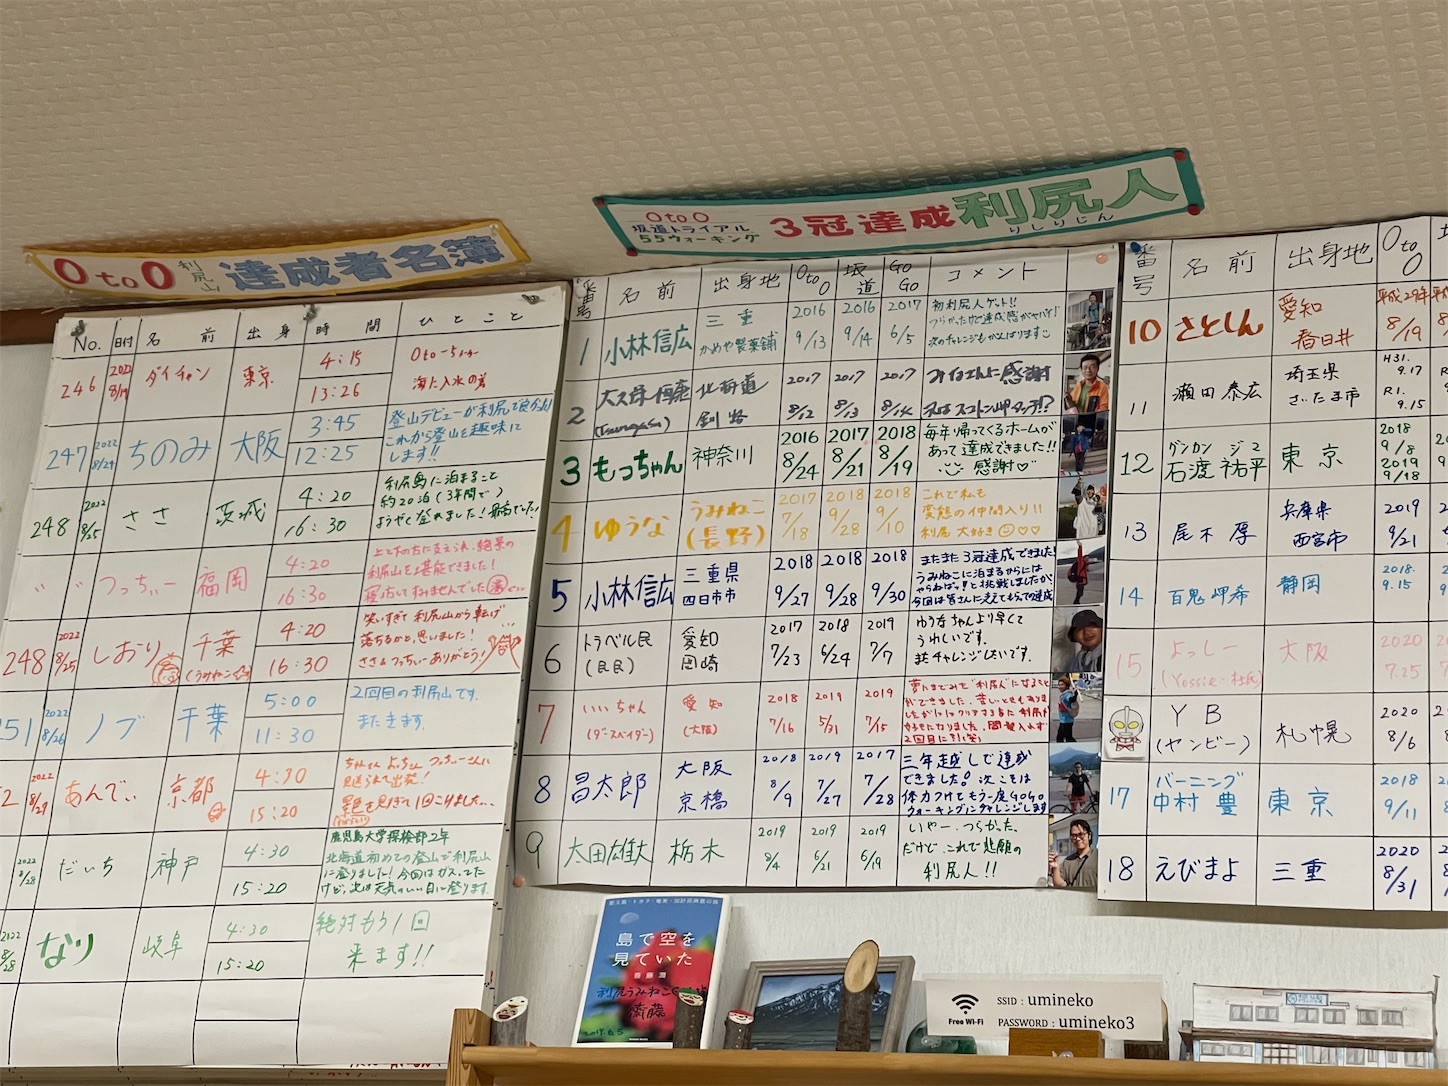 0 to 0 利尻山 達成者名簿
No. 日付 名前 出身 時間 ひとこと
246 2022 8/19 ダイチャン 東京 4:15 13:26
247 2022 8/24 ちのみ 大阪 3:45 12:25
登山デビューが利尻で良かった!
これから登山を趣味に
します!!
248 2022 8/25 ささ 茨城 4:20 16:30
利尻島に泊まること
約20泊(3年間で)
ようやく登れました!最高でした!
〃 〃 つっちぃー 福岡 4:20 16:30
利尻山を堪能できました!
248 2022 8/25 しおり 千葉 (うみねこ 4:20 16:30
笑いすぎて利尻山から転げ
落ちるかと思いました!
ささ&つっちぃーありがとう!
51 2022 8/26 ノブ 千葉 5:00 11:30
2回目の利尻山です。
またきます。
2 2022 8/29 あんでぃ 京都 4:30 15:20
見送られて出発!
2022 8/28 だいち 神戸 4:30 15:20
鹿児島大学探検部2年
北海道初めての登山で利尻山
に登りました!今回はガスってた
けど、次は天気のいい日に登ります。
2022 8/28 なり 岐阜 4:30 15:20
絶対もう1回
来ます!!
0 to 0
坂道トライアル
55ウォーキング
3冠達成利尻人
りしりじん
番号 名前 出身地 0to0 坂道 GoGo コメント
1 小林信広 三重 かめや製菓舗 2016 9/13 2016 9/14 2017 6/5
初利尻人ゲット!!
つらかったけど達成感がヤバイ!
次のチャレンジもがんばります
2 北海道 釧路 2017 8/12 2017 8/13 2017 8/14
みなさんに感謝
3 もっちゃん 神奈川 2016 8/24 2017 8/21 2018 8/19
毎年帰ってくるホームが
あって達成できました!!
感謝♡
4 ゆうな うみねこ (長野) 2017 7/18 2018 9/28 2018 9/10
これで私も
変態の仲間入り!!
利尻大好き♡♡
5 小林信広 三重県 四日市市 2018 9/27 2018 9/28 2018 9/30
またまた3冠達成できました!
うみねこに泊まるからには
やらねばっ!!と挑戦しましたが
今回は皆さんに支えてもらっての達成
6 トラベル民 (民民) 愛知 岡崎 2017 7/23 2018 6/24 2019 7/7
ゆうなちゃんより早くて
うれしいです。
またチャレンジしたいです。
7 いいちゃん (ダースベイダー) 愛知 (大阪) 2018 7/16 2019 5/31 2019 7/15
8 昌太郎 大阪 京橋 2018 8/9 2019 7/27 2017 7/28
三年越しで達成
できました!次こそは
体力つけてもう一度GoGo
ウォーキングにチャレンジします
9 太田雄大 栃木 2019 8/4 2019 6/21 2019 6/19
いやー、つらかった。
だけど、これで悲願の
利尻人!!
番号 名前 出身地 0to0
10 さとしん 愛知 春日井 平成29年 8/19
11 瀬田泰広 埼玉県 さいたま市 H31. 9.17 R1. 9.15
12 ゲンカン ジ2 石渡祐平 東京 2018 9/8 2019 9/18
13 尾木厚 兵庫県 西宮市 2019 9/21
14 百鬼岬希 静岡 2018. 9.15
15 よっしー (Yossie・杜氏) 大阪 2020 7.25
YB (ヤンビー) 札幌 2020 8/6
17 バーニング 中村豊 東京 2018 9/11
18 えびまよ 三重 2020 8/31
島で空を
見ていた
斎藤潤
利尻うみねこ
2017.6.5
Free Wi-Fi
SSID : umineko
PASSWORD : umineko3